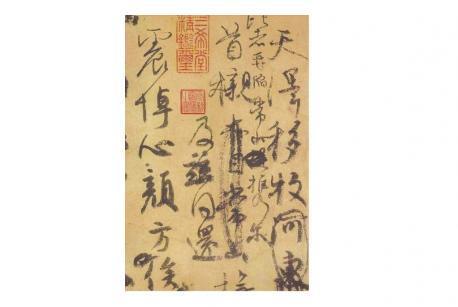 天澤移牧河關
比者再陷常山攜爾
首櫬亦自常山
及茲同還
三希堂
精鑑璽
震悼心顏方俟